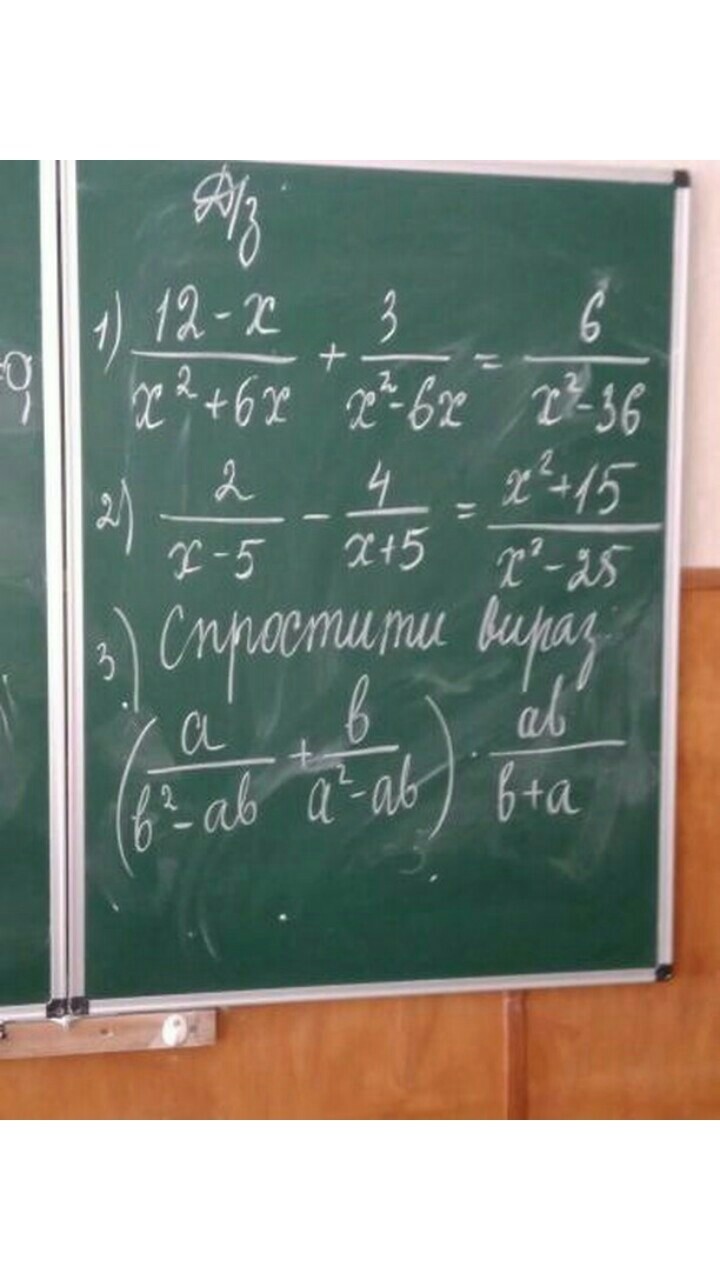 Д/з
1) (12-x)/(x²+6x) + 3/(x²-6x) = 6/(x²-36)
2) 2/(x-5) - 4/(x+5) = (x²+15)/(x²-25)
3) Спростити вираз:
(a/(b²-ab) + b/(a²-ab)) · ab/(b+a)